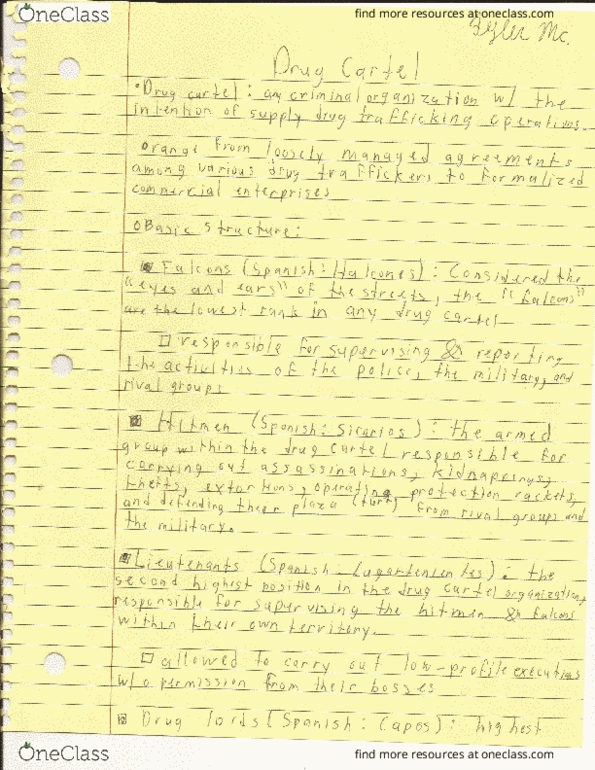 OneClass
find more resources at oneclass.com
Tyler Mc.
Drug Cartel
•Drug cartel: any criminal organization w/ the
intention of supply drug trafficking operations.
orange from loosely managed agreements
among various drug traffickers to formalized
commercial enterprises
oBasic Structure:
Falcons (Spanish: Halcones): Considered the
"eyes and ears" of the streets, the "falcons"
are the lowest rank in any drug cartel
□ responsible for supervising & reporting
the activities of the police, the military, and
rival groups
Hitmen (Spanish: Sicarios): the armed
group within the drug cartel responsible for
carrying out assassinations, kidnapings,
thefts, extortions, operating protection rackets,
and defending their plaza (turf) from rival groups and
the military.
Lieutenants (Spanish: Lugartenientes): the
second highest position in the drug cartel organization,
responsible for supervising the hitmen & falcons
within their own territory.
□ allowed to carry out low-profile executions
w/o permission from their bosses
Drug lords (Spanish: Capos): highest
OneClass
find more resources at oneclass.com